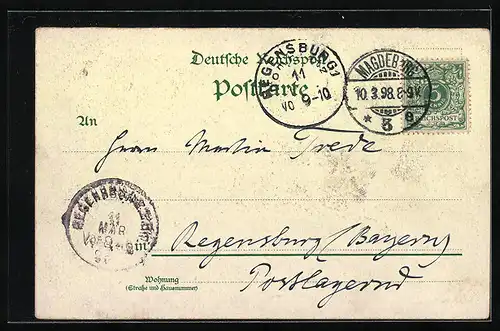 Deutsche Reichspost
Postkarte
REGENSBURG 1
11
VO 9-10
MAGDEBURG
10.3.98.8-9V.
* 3 g
5
REICHSPOST
An
Herrn Martin Trede
11
MAR
in
Regensburg (Bayern)
Postlagernd
Wohnung
(Straße und Hausnummer)